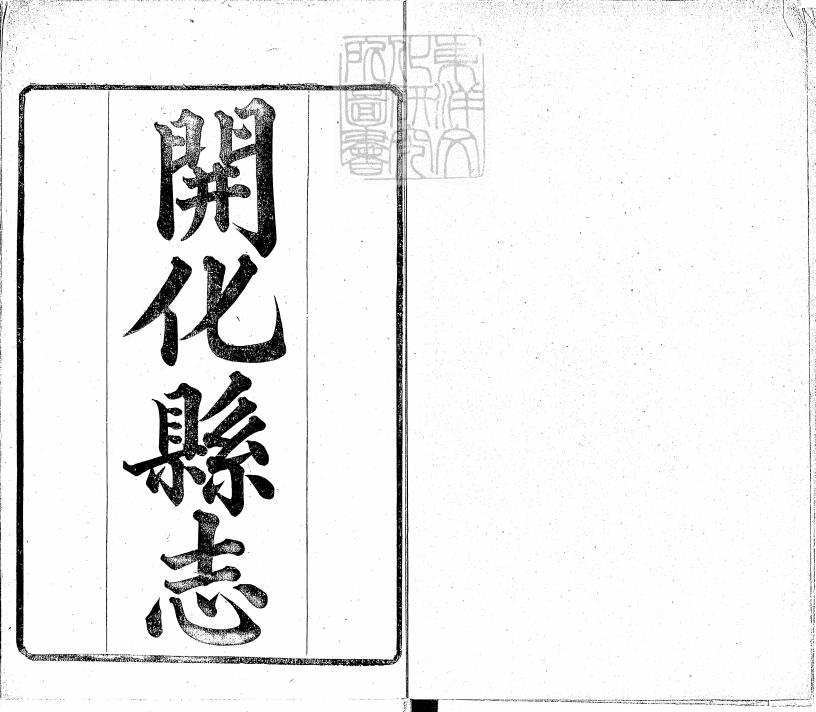 開化縣志
東洋文
化研究
所圖書